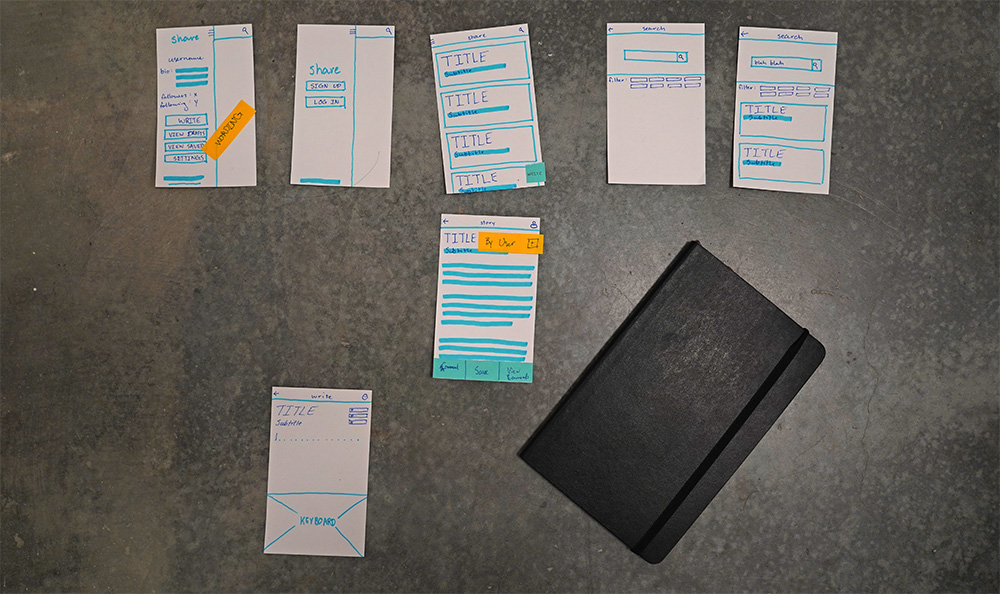 share
username
bio:
followers: x
following: y
WRITE
VIEW DRAFTS
VIEW SAVED
SETTINGS
WORDING
share
SIGN UP
LOG IN
share
TITLE
Subtitle
TITLE
Subtitle
TITLE
Subtitle
TITLE
WRITE
search
filter:
search
blah blah
filter:
TITLE
Subtitle
TITLE
Subtitle
story
TITLE
Subtitle
By User
Save
View
write
TITLE
Subtitle
KEYBOARD